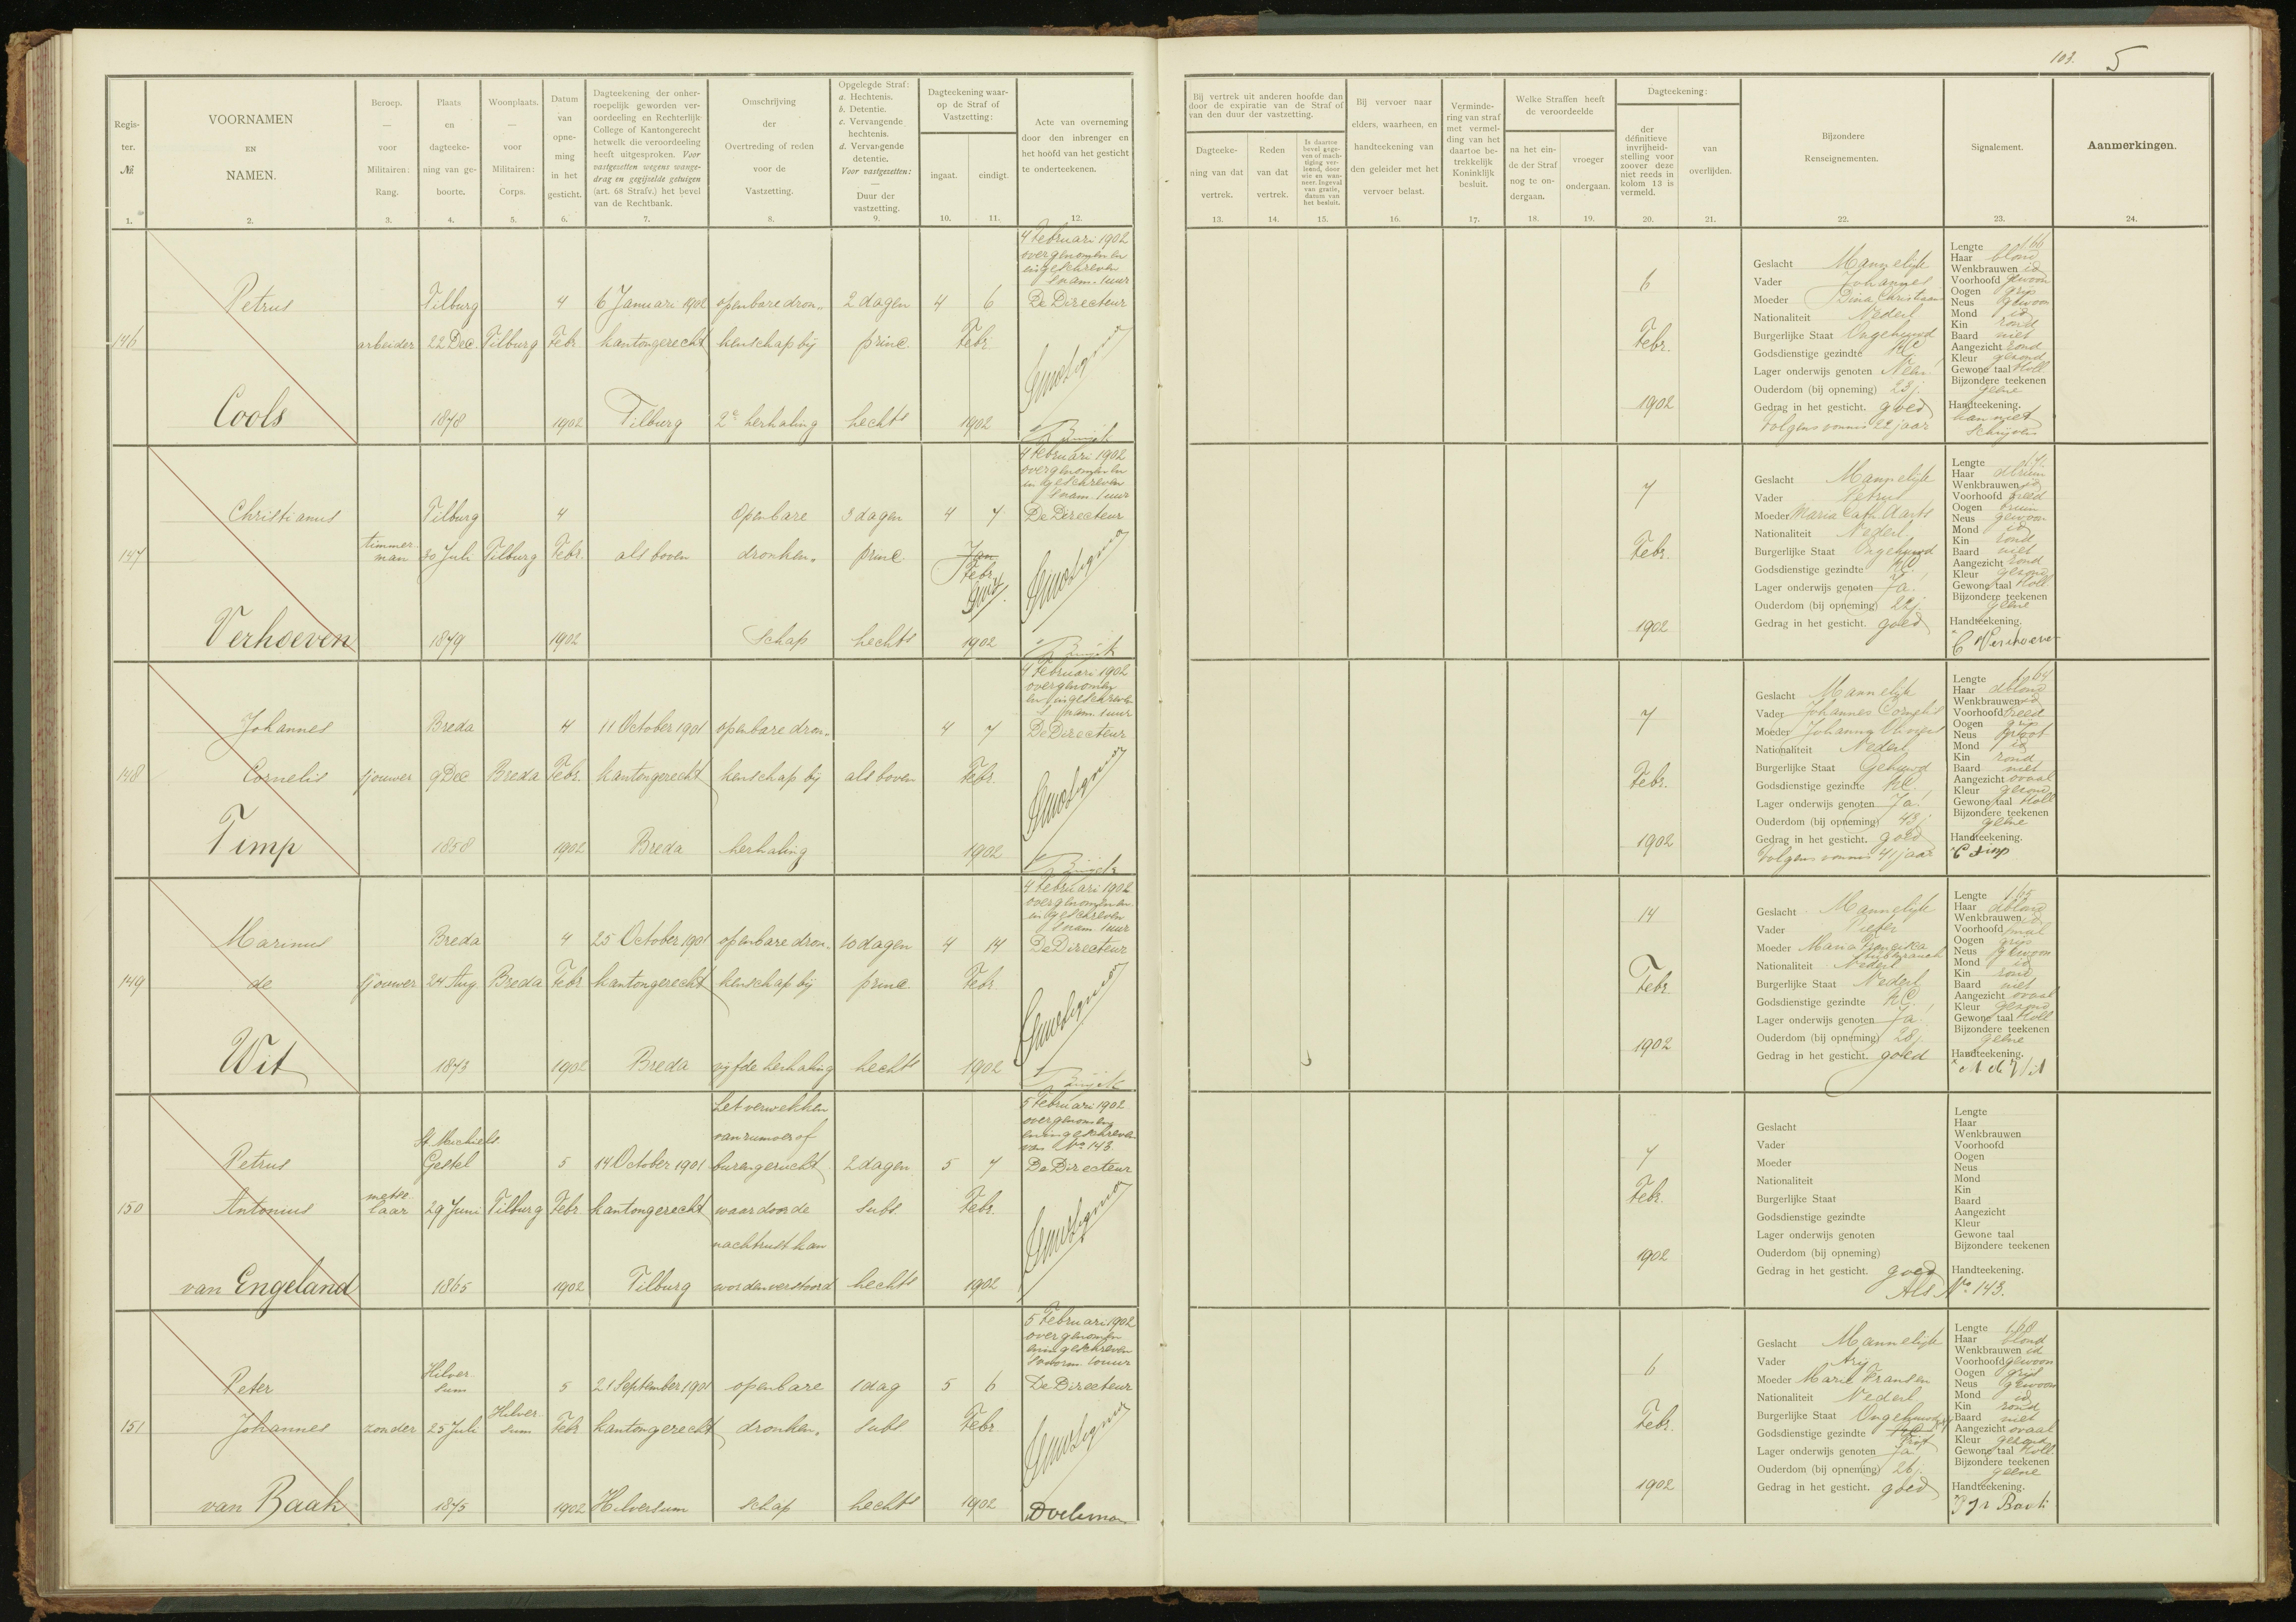 103. 5
Regis-
ter.
No.
1.
VOORNAMEN
EN
NAMEN.
2.
Beroep.
—
voor
Militairen:
Rang.
3.
Plaats
en
dagteeke-
ning van ge-
boorte.
4.
Woonplaats.
—
voor
Militairen:
Corps.
5.
Datum
van
opne-
ming
in het
gesticht.
6.
Dagteekening der onher-
roepelijk geworden ver-
oordeeling en Rechterlijk
College of Kantongerecht
hetwelk die veroordeeling
heeft uitgesproken. Voor
vastgezetten wegens wange-
drag en gegijzelde getuigen
(art. 68 Strafv.) het bevel
van de Rechtbank.
7.
Omschrijving
der
Overtreding of reden
voor de
Vastzetting.
8.
Opgelegde Straf:
a. Hechtenis.
b. Detentie.
c. Vervangende
hechtenis.
d. Vervangende
detentie.
Voor vastgezetten:
—
Duur der
vastzetting.
9.
Dagteekening waar-
op de Straf of
Vastzetting:
ingaat.
10.
eindigt.
11.
Acte van overneming
door den inbrenger en
het hoofd van het gesticht
te onderteekenen.
12.
Bij vertrek uit anderen hoofde dan
door de expiratie van de Straf of
van den duur der vastzetting.
Dagteeke-
ning van dat
vertrek.
13.
Reden
van dat
vertrek.
14.
Is daartoe
bevel gege-
ven of mach-
tiging ver-
leend, door
wie en wan-
neer. Ingeval
van gratie,
datum van
het besluit.
15.
Bij vervoer naar
elders, waarheen, en
handteekening van
den geleider met het
vervoer belast.
16.
Verminde-
ring van straf
met vermel-
ding van het
daartoe be-
trekkelijk
Koninklijk
besluit.
17.
Welke Straffen heeft
de veroordeelde
na het ein-
de der Straf
nog te on-
dergaan.
18.
vroeger
ondergaan.
19.
Dagteekening:
der
définitieve
invrijheid-
stelling voor
zoover deze
niet reeds in
kolom 13 is
vermeld.
20.
van
overlijden.
21.
Bijzondere
Renseignementen.
22.
Signalement.
23.
Aanmerkingen.
24.
146
Petrus
Cools
arbeider
Tilburg
22 Dec.
1878
Tilburg
4
Febr.
1902
6 Januari 1902
kantongerecht
Tilburg
openbare dron-
kenschap bij
2e herhaling
2 dagen
princ.
hechts
4 6
Febr.
1902
4 Februari 1902
overgenomen en
ingeschreven
's nam. 1 uur
De Directeur
6
Febr.
1902
Geslacht Mannelijk
Vader Johannes
Moeder Dina Christiaan
Nationaliteit Nederl
Burgerlijke Staat Ongehuwd
Godsdienstige gezindte RC
Lager onderwijs genoten Neen
Ouderdom (bij opneming) 23 j.
Gedrag in het gesticht. goed
Volgens vonnis 22 jaar
Lengte 166
Haar blond
Wenkbrauwen id
Voorhoofd gewoon
Oogen grijs
Neus gewoon
Mond id
Kin rond
Baard niet
Aangezicht rond
Kleur gezond
Gewone taal Holl
Bijzondere teekenen
geene
Handteekening.
kan niet
schrijven
147
Christianus
Verhoeven
timmer-
man
Tilburg
30 Juli
1879
Tilburg
4
Febr.
1902
als boven
Openbare
dronken-
schap
3 dagen
princ
hechts
4 7
Jan
Febr.
1902
4 Februari 1902
overgenomen en
ingeschreven
's nam. 1 uur
De Directeur
7
Febr.
1902
Geslacht Mannelijk
Vader Petrus
Moeder Maria Cath Aarts
Nationaliteit Nederl.
Burgerlijke Staat Ongehuwd
Godsdienstige gezindte RC
Lager onderwijs genoten Ja.
Ouderdom (bij opneming) 22 j.
Gedrag in het gesticht. goed
Lengte 171
Haar dbruin
Wenkbrauwen id
Voorhoofd breed
Oogen bruin
Neus gewoon
Mond id
Kin rond
Baard niet
Aangezicht rond
Kleur gezond
Gewone taal Holl
Bijzondere teekenen
geene
Handteekening.
C Verhoeven
148
Johannes
Cornelis
Timp
sjouwer
Breda
9 Dec
1858
Breda
4
Febr.
1902
11 October 1901
kantongerecht
Breda
openbare dron-
kenschap bij
herhaling
als boven
4 7
Febr.
1902
4 Februari 1902
overgenomen
en ingeschreven
's nam. 1 uur
De Directeur
7
Febr.
1902
Geslacht Mannelijk
Vader Johannes Cornelis
Moeder Johanna
Nationaliteit Nederl
Burgerlijke Staat Gehuwd
Godsdienstige gezindte RC
Lager onderwijs genoten Ja
Ouderdom (bij opneming) 43 j.
Gedrag in het gesticht. goed
Volgens vonnis 41 jaar
Lengte 164
Haar dblond
Wenkbrauwen id
Voorhoofd breed
Oogen grijs
Neus groot
Mond id
Kin rond
Baard niet
Aangezicht ovaal
Kleur gezond
Gewone taal Holl
Bijzondere teekenen
geene
Handteekening.
C Timp
149
Marinus
de
Wit
sjouwer
Breda
24 Aug
1873
Breda
4
Febr
1902
25 October 1901
kantongerecht
Breda
openbare dron-
kenschap bij
vijfde herhaling
10 dagen
princ.
hechts
4 14
Febr.
1902
4 Februari 1902
overgenomen en
ingeschreven
's nam. 1 uur
De Directeur
14
Febr.
1902
Geslacht Mannelijk
Vader Pieter
Moeder Maria Franciska
Nationaliteit Nederl
Burgerlijke Staat Nederl
Godsdienstige gezindte RC.
Lager onderwijs genoten Ja.
Ouderdom (bij opneming) 28 j.
Gedrag in het gesticht. goed
Lengte 165
Haar dblond
Wenkbrauwen id
Voorhoofd smal
Oogen grijs
Neus gewoon
Mond id
Kin rond
Baard niet
Aangezicht ovaal
Kleur gezond
Gewone taal Holl
Bijzondere teekenen
geene
Handteekening.
M de Wit
150
Petrus
Antonius
van Engeland
metse-
laar
St. Michiels
Gestel
29 Juni
1865
Tilburg
5
Febr
1902
14 October 1901
kantongerecht
Tilburg
het verwekken
van rumoer of
burengerucht
waardoor de
nachtrust kan
worden verstoord
2 dagen
subs.
hechts
5 7
Febr.
1902
5 Februari 1902
overgenomen
en ingeschreven
van No. 143.
De Directeur
7
Febr.
1902
Geslacht
Vader
Moeder
Nationaliteit
Burgerlijke Staat
Godsdienstige gezindte
Lager onderwijs genoten
Ouderdom (bij opneming)
Gedrag in het gesticht. goed
Als No. 143.
Lengte
Haar
Wenkbrauwen
Voorhoofd
Oogen
Neus
Mond
Kin
Baard
Aangezicht
Kleur
Gewone taal
Bijzondere teekenen
Handteekening.
151
Peter
Johannes
van Baak
zonder
Hilver-
sum
25 Juli
1875
Hilver-
sum
5
Febr
1902
21 September 1901
kantongerecht
Hilversum
openbare
dronken-
schap
1 dag
subs.
hechts
5 6
Febr.
1902
5 Februari 1902
overgenomen
en ingeschreven
's voorm. 10 uur
De Directeur
6
Febr.
1902
Geslacht Mannelijk
Vader Arij
Moeder Marie Fransen
Nationaliteit Nederl
Burgerlijke Staat Ongehuwd
Godsdienstige gezindte RC Prot
Lager onderwijs genoten Ja
Ouderdom (bij opneming) 26 j.
Gedrag in het gesticht. goed
Lengte 168
Haar blond
Wenkbrauwen id
Voorhoofd gewoon
Oogen grijs
Neus gewoon
Mond id
Kin rond
Baard niet
Aangezicht ovaal
Kleur gezond
Gewone taal Holl.
Bijzondere teekenen
geene
Handteekening.